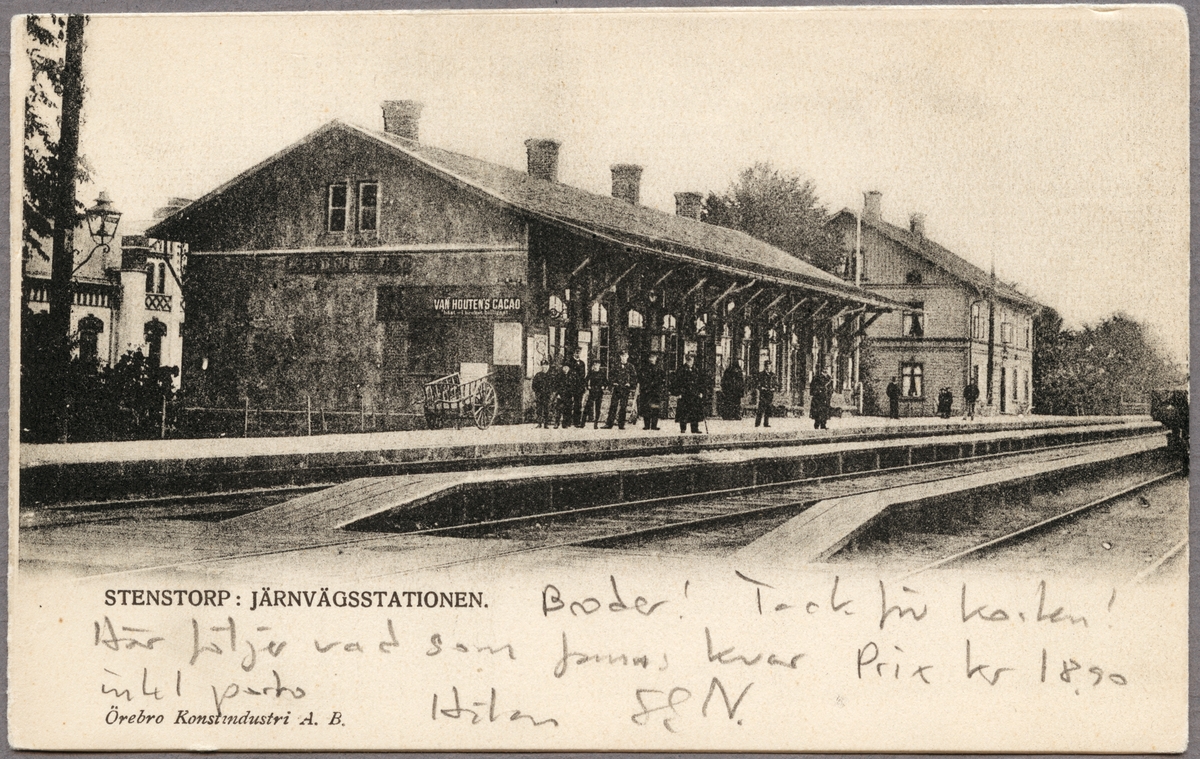 VAN HOUTEN'S CACAO
STENSTORP: JÄRNVÄGSSTATIONEN.
Broder! Tack för korten!
Här följer vad som finnes kvar Prix kr 18,90
inkl porto
Örebro Konstindustri A. B.